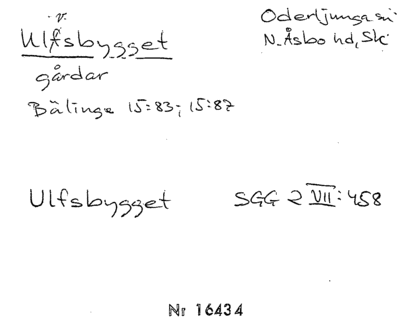 v.
Ulfsbygget
Oderljunga sn
N. Åsbo hd, Sk.
gårdar
Bälinge 15:83; 15:87
Ulfsbygget SGG 2 VII: 458
Nr 16434